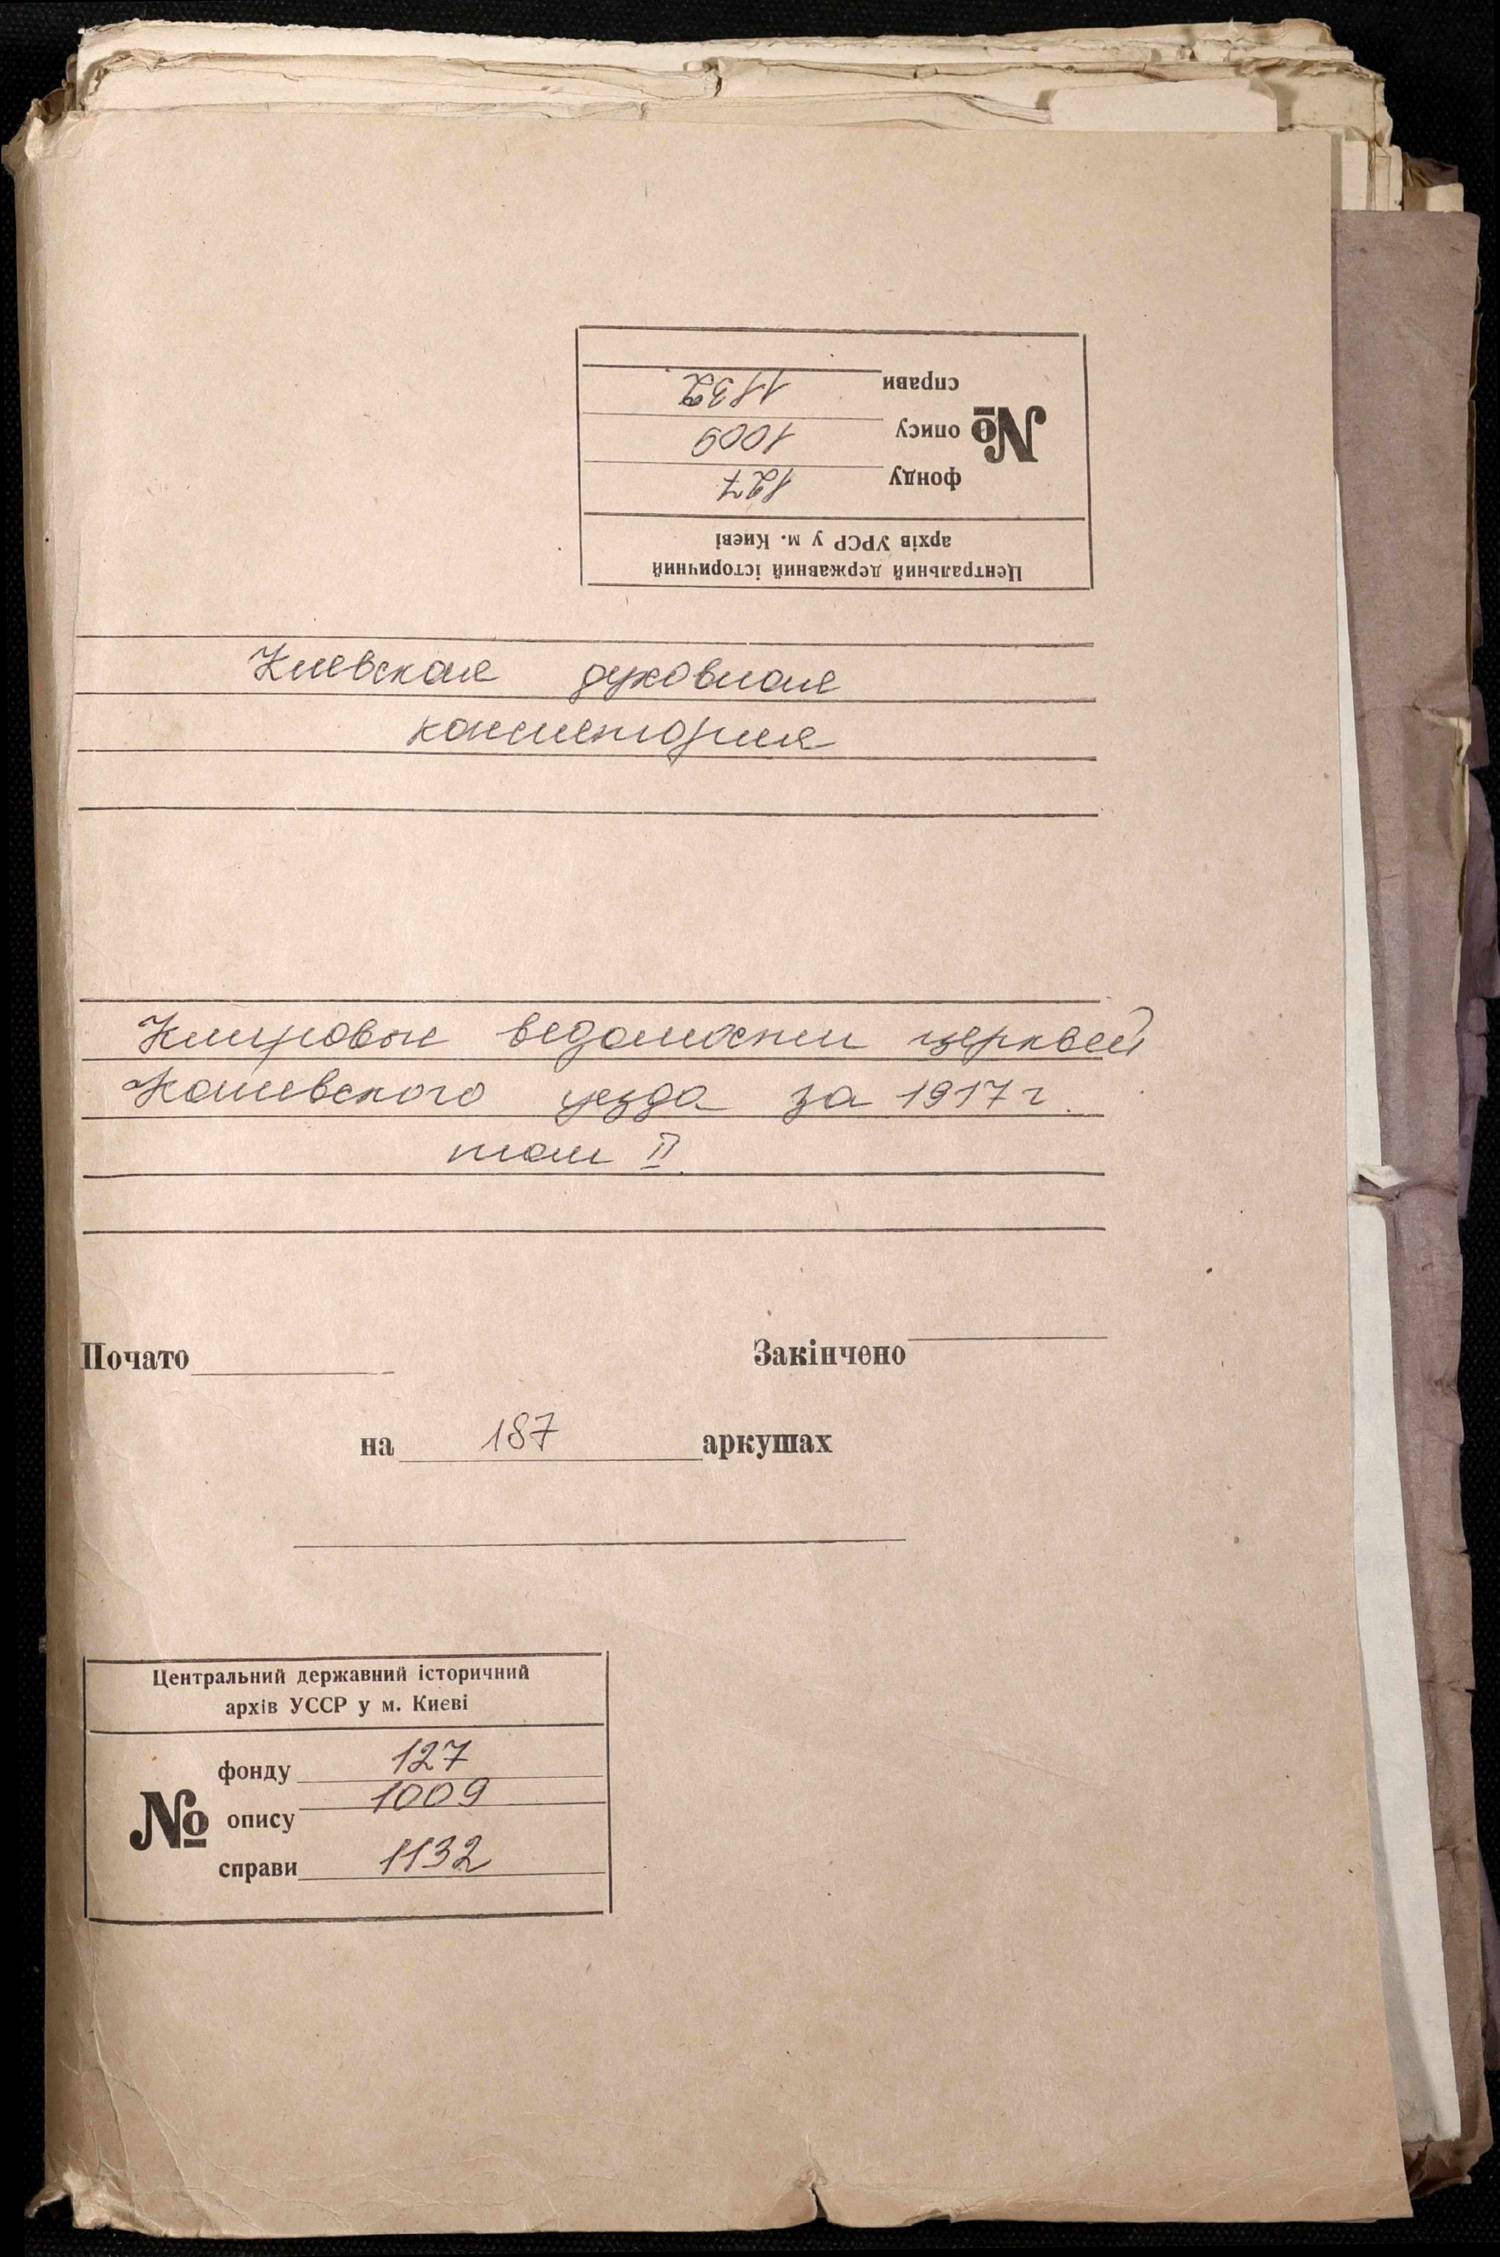 Центральний державний історичний
архів УРСР у м. Києві
фонду 127
№ опису 1009
справи 1132
Киевская духовная
консистория
Клировые ведомости церквей
Каневского уезда за 1917 г.
том II.
Почато Закінчено
на 187 аркушах
Центральний державний історичний
архів УССР у м. Києві
фонду 127
№ опису 1009
справи 1132